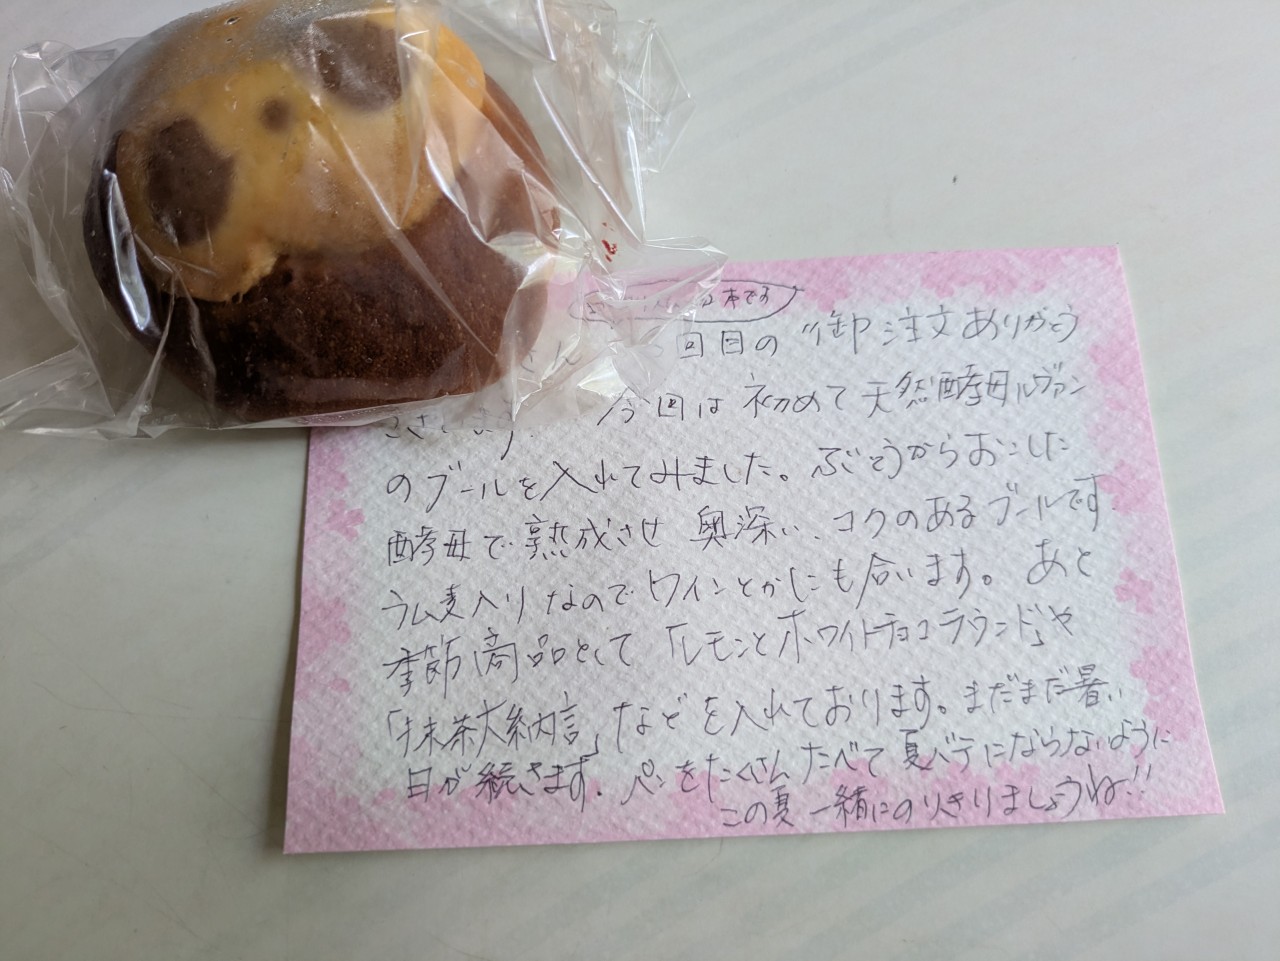 本です
回目の御注文ありがとう
今回は初めて天然酵母ルヴァン
のブールを入れてみました。ぶどうからおこした
酵母で熟成させ 奥深い、コクのあるブールです。
ライ麦入りなのでワインとかにも合います。あと
季節商品として「レモンとホワイトチョコラウンド」や
「抹茶大納言」などを入れております。まだまだ暑い
日が続きます。パンをたくさんたべて夏バテにならないように
この夏一緒にのりきりましょうね!!